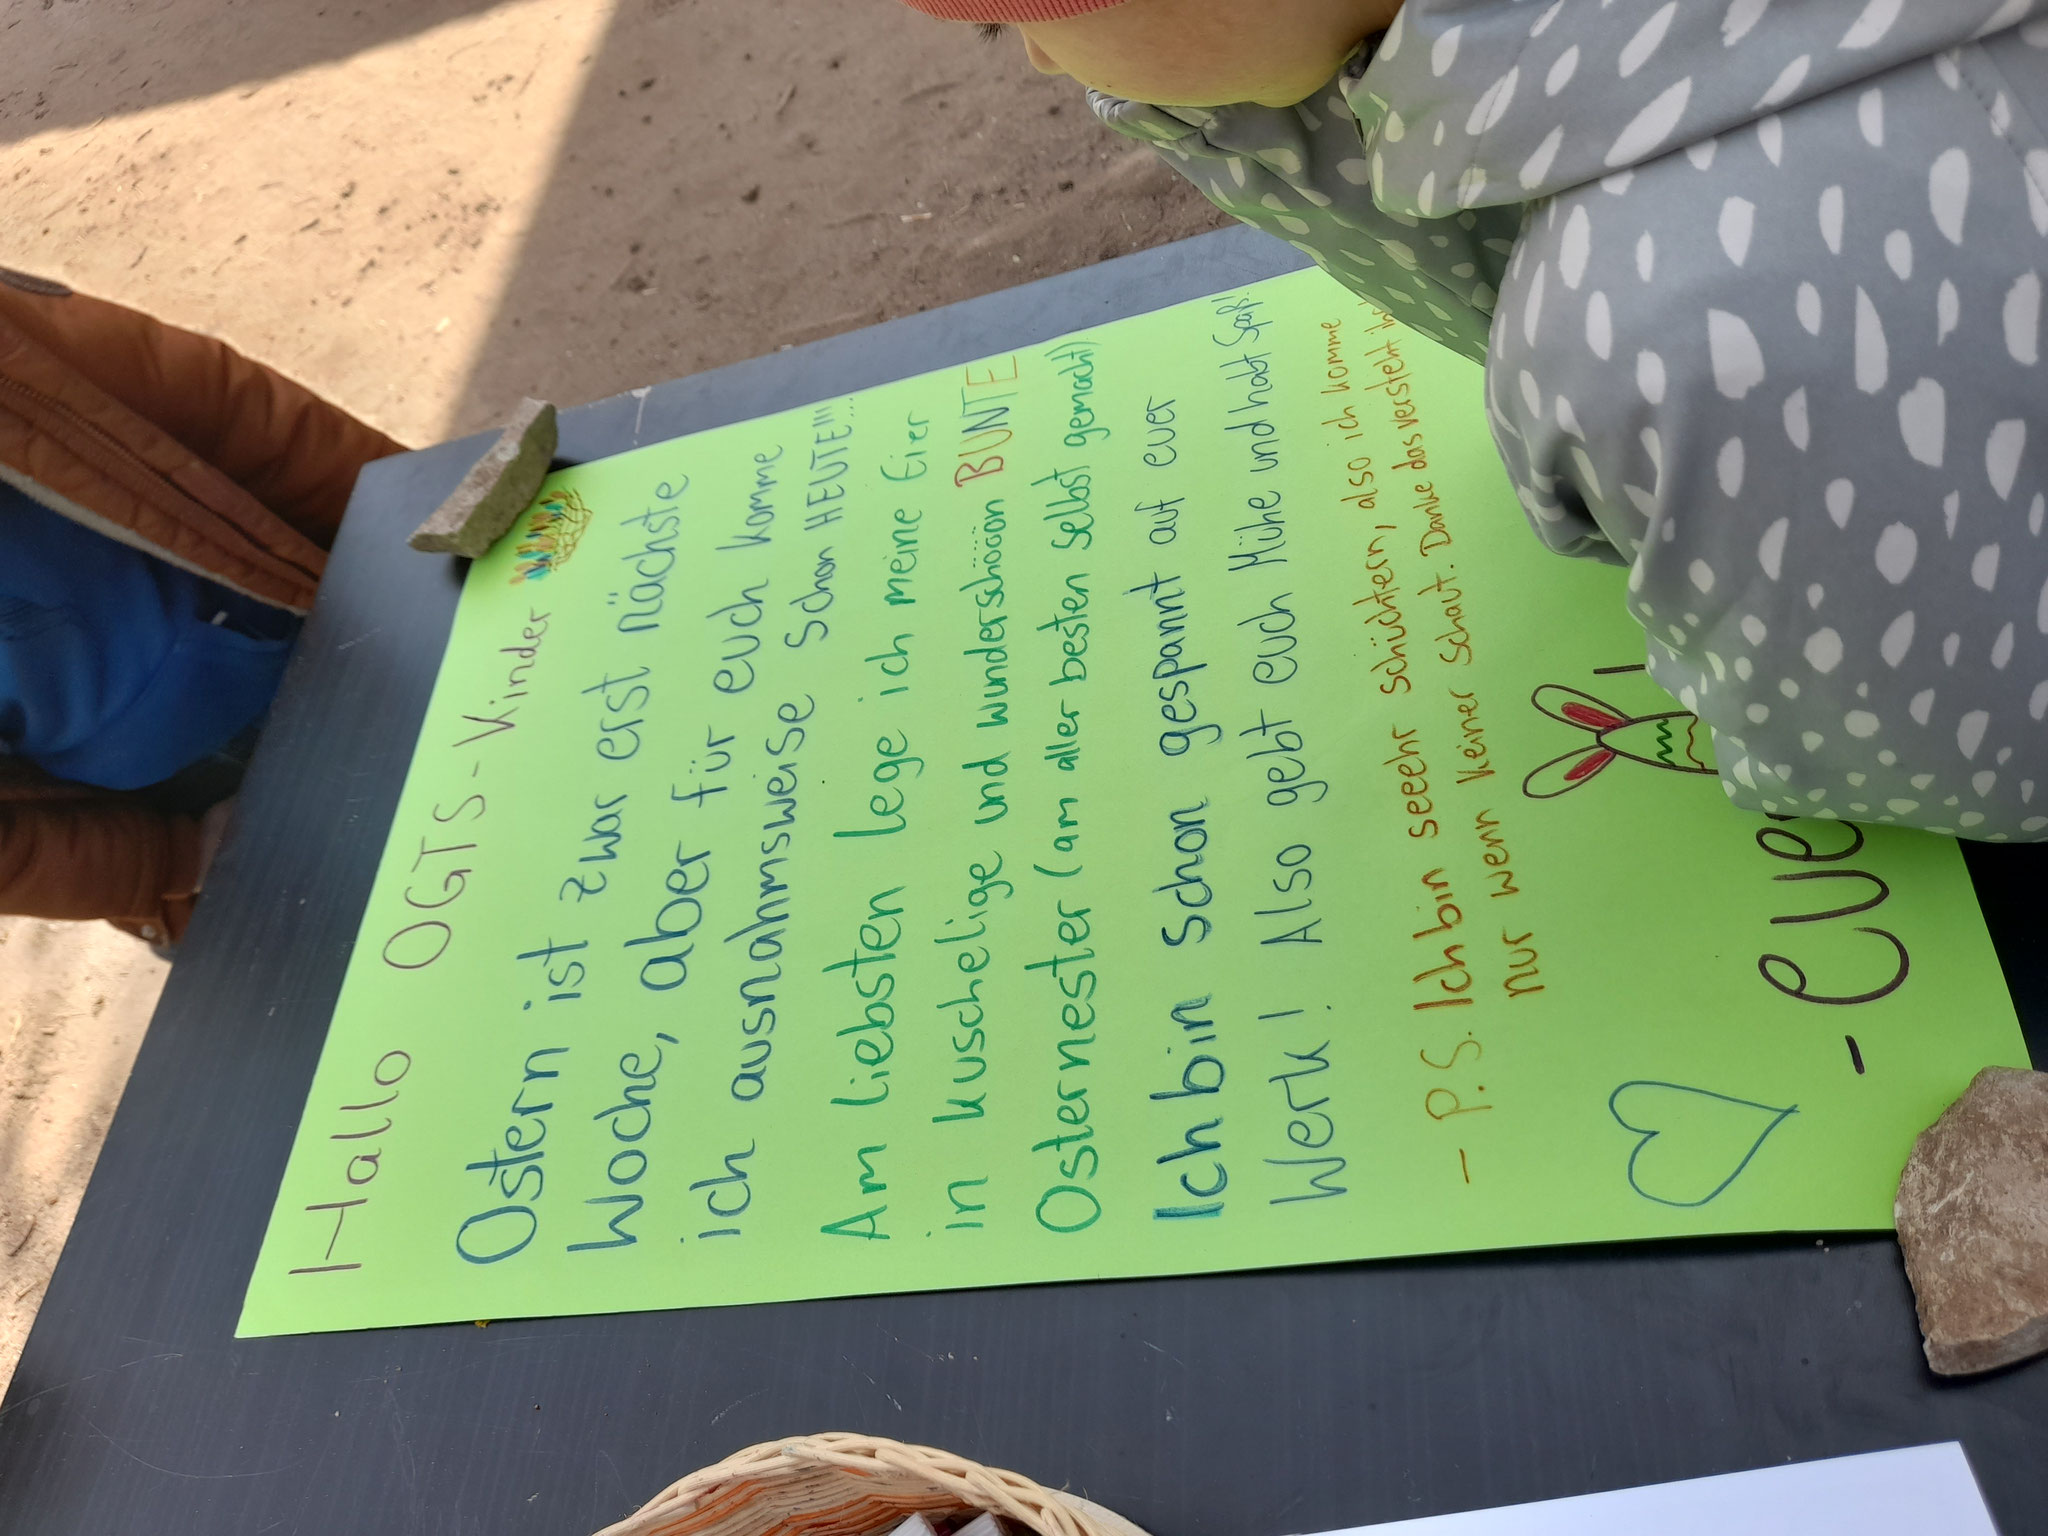 Hallo OGTS-Kinder
Ostern ist zwar erst nächste
Woche, aber für euch komme
ich ausnahmsweise schon HEUTE!!!...
Am liebsten lege ich meine Eier
in kuschelige und wunderschöön BUNTE
Osternester (am aller besten selbst gemacht).
Ich bin schon gespannt auf euer
Werk! Also gebt euch Mühe und habt Spaß!
- P.S. Ich bin seeehr schüchtern, also ich komme
nur wenn keiner schaut. Danke das versteht
-